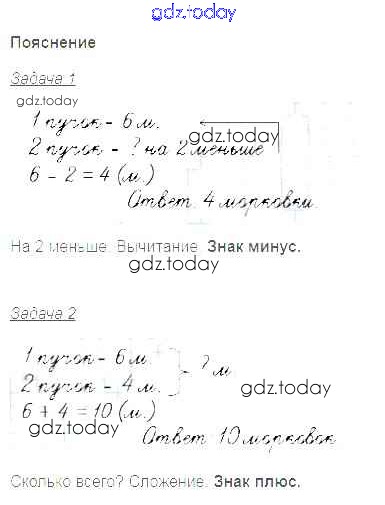 gdz.today
Пояснение
Задача 1
gdz.today
1 пучок - 6 м.
gdz.today
2 пучок - ? на 2 меньше
6 - 2 = 4 (м.)
Ответ 4 морковки.
На 2 меньше. Вычитание. Знак минус.
gdz.today
Задача 2
1 пучок - 6 м
2 пучок - 4 м. - ? м
gdz.today
6 + 4 = 10 (м.)
gdz.today
Ответ 10 морковок
Сколько всего? Сложение. Знак плюс.